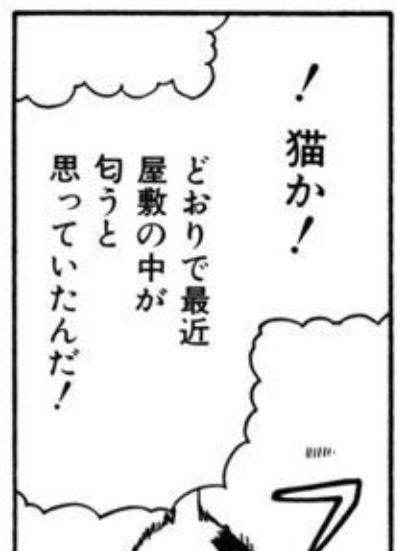 ！猫か！
どおりで最近
屋敷の中が
匂うと
思っていたんだ！